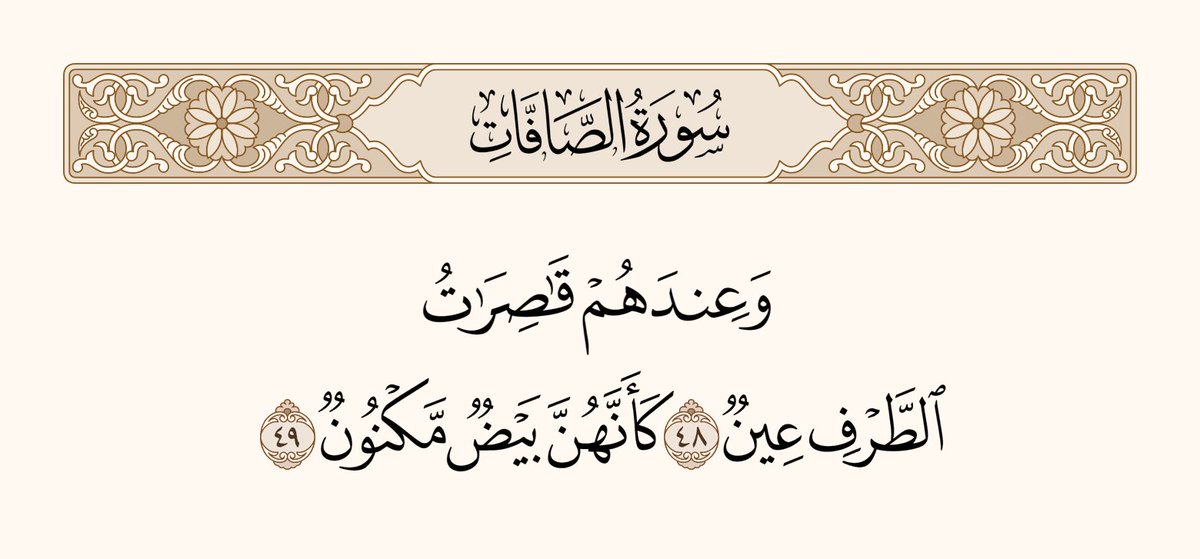 سُورَةُ الصَّافَّاتِ
وَعِندَهُمۡ قَٰصِرَٰتُ
ٱلطَّرۡفِ عِينٞ ٤٨ كَأَنَّهُنَّ بَيۡضٞ مَّكۡنُونٞ ٤٩